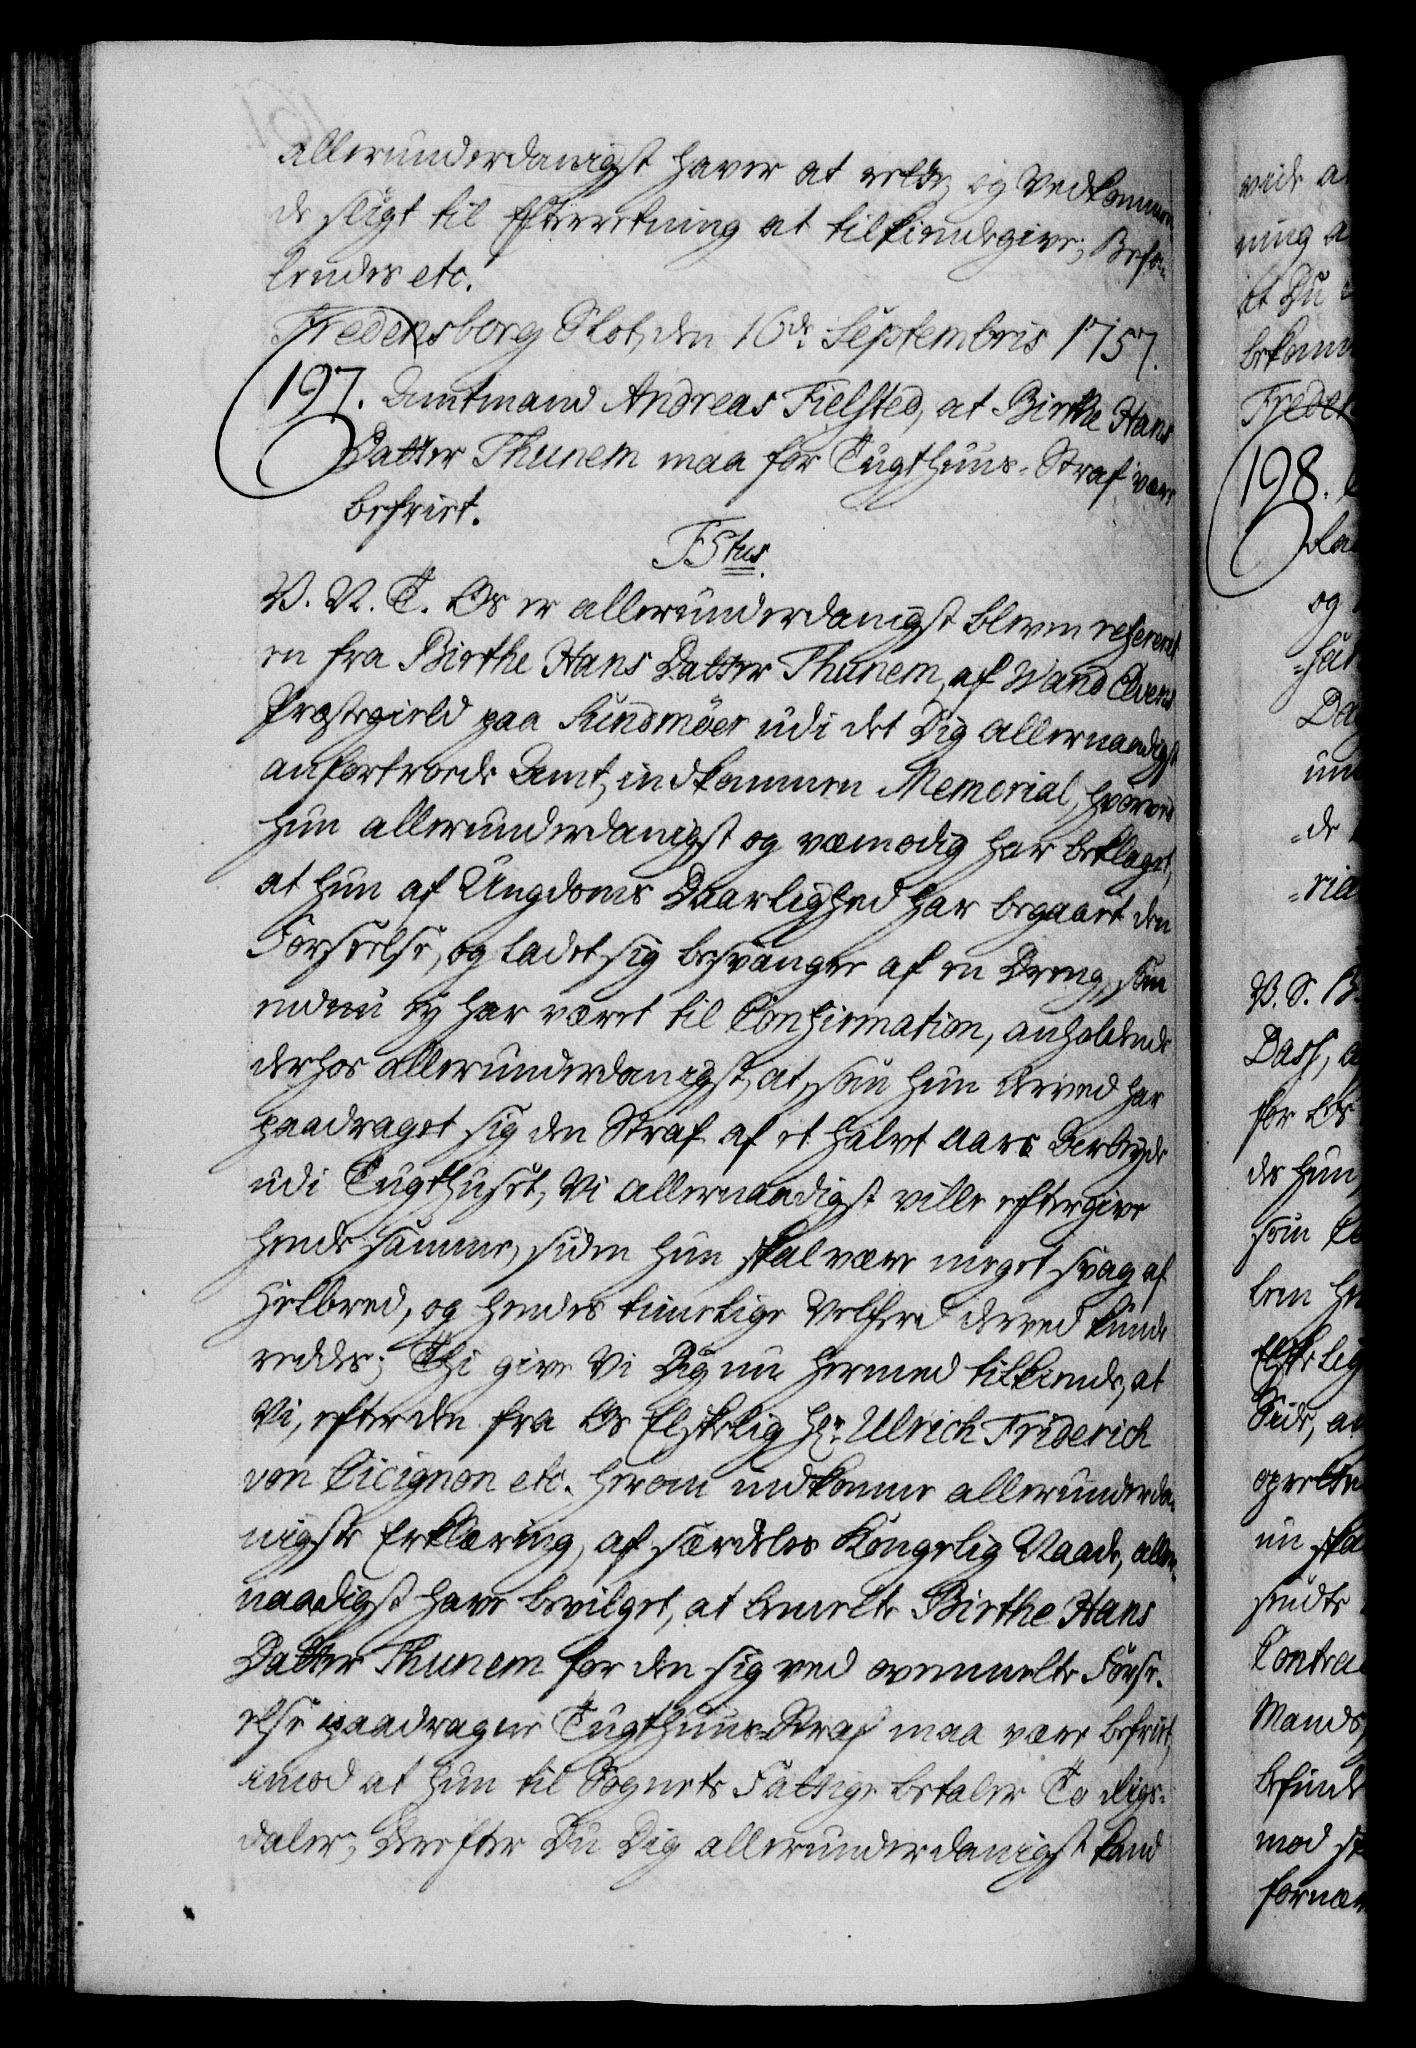 allerunderdanigst haver at rette, og Vedkommen-
de sligt til Efterretning at tilkiendegive; Befa-
lendes etc.
Fredensborg Slot, den 16de Septembris 1757.
197. Amtmand Andreas Fielsted, at Birthe Hans
Datter Thunem maa for Tugthuus-Straf være
befriet.
F5tus.
V. N. T. Os er allerunderdanigst bleven refereret
en fra Birthe Hans Datter Thunem, af Wand Elvens
Præstegield paa Sundmöer udi det Dig allernaadigst
anfortroede Amt, indkommen Memorial, hvorved
hun allerunderdanigst og vemodig har beklaget,
at hun af Ungdoms Daarlighed har begaaet den
Forseelse, og ladet sig besvangre af en Dreng, som
endnu ey har været til Confirmation, anholdende
derhos allerunderdanigst, at, som hun derved har
paadraget sig den Straf af et halvt Aars Arbeyde
udi Tugthuset, Vi allernaadigst ville eftergive
hende samme, siden hun skal være meget svag af
Helbred, og hendes timelige Velferd derved kunde
reddes; Thi give Vi Dig nu hermed tilkiende, at
Vi, efter den fra Os Elskelig Hr. Ulrich Friderich
von Cicignon etc. herom indkomne allerunderda-
nigste Erklæring, af særdeles Kongelig Naade, aller-
naadigst have bevilget, at bemelte Birthe Hans
Datter Thunem for den sig ved ovenmelte Forse-
else paadragne Tugthuus-Straf maa være befriet,
imod at hun til Sognets Fattige betaler To Rigs-
daler; Derefter Du Dig allerunderdanigst kand
vide a
ning a
at Du
bekomm
Freden
198.
og
Da
de
V. S. B
Dass, a
for Os
de hun
som Co
len He
Elskelig
Side, an
oprette
nu ska
sendte
Contra
Mands
befinde
mod s
fornæ